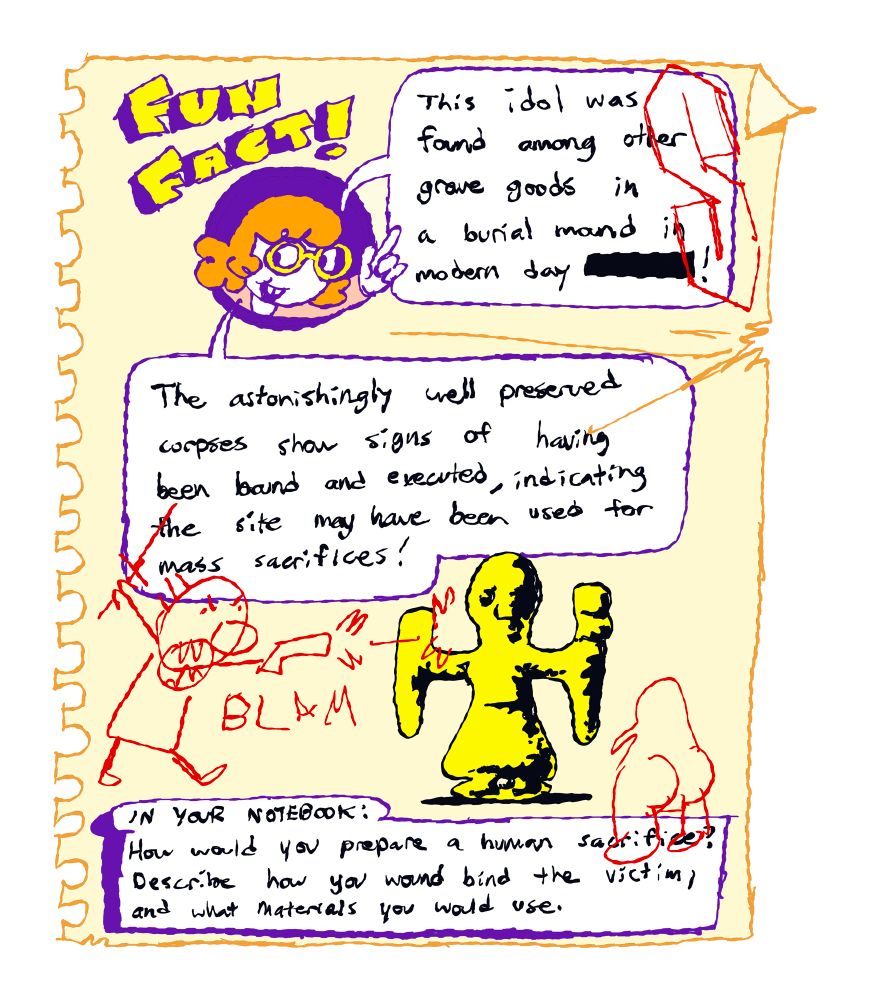 FUN
FACT!
This idol was
found among other
grave goods in
a burial mound in
modern day !
The astonishingly well preserved
corpses show signs of having
been bound and executed, indicating
the site may have been used for
mass sacrifices!
BLAM
IN YOUR NOTEBOOK:
How would you prepare a human sacrifice?
Describe how you would bind the victim,
and what materials you would use.